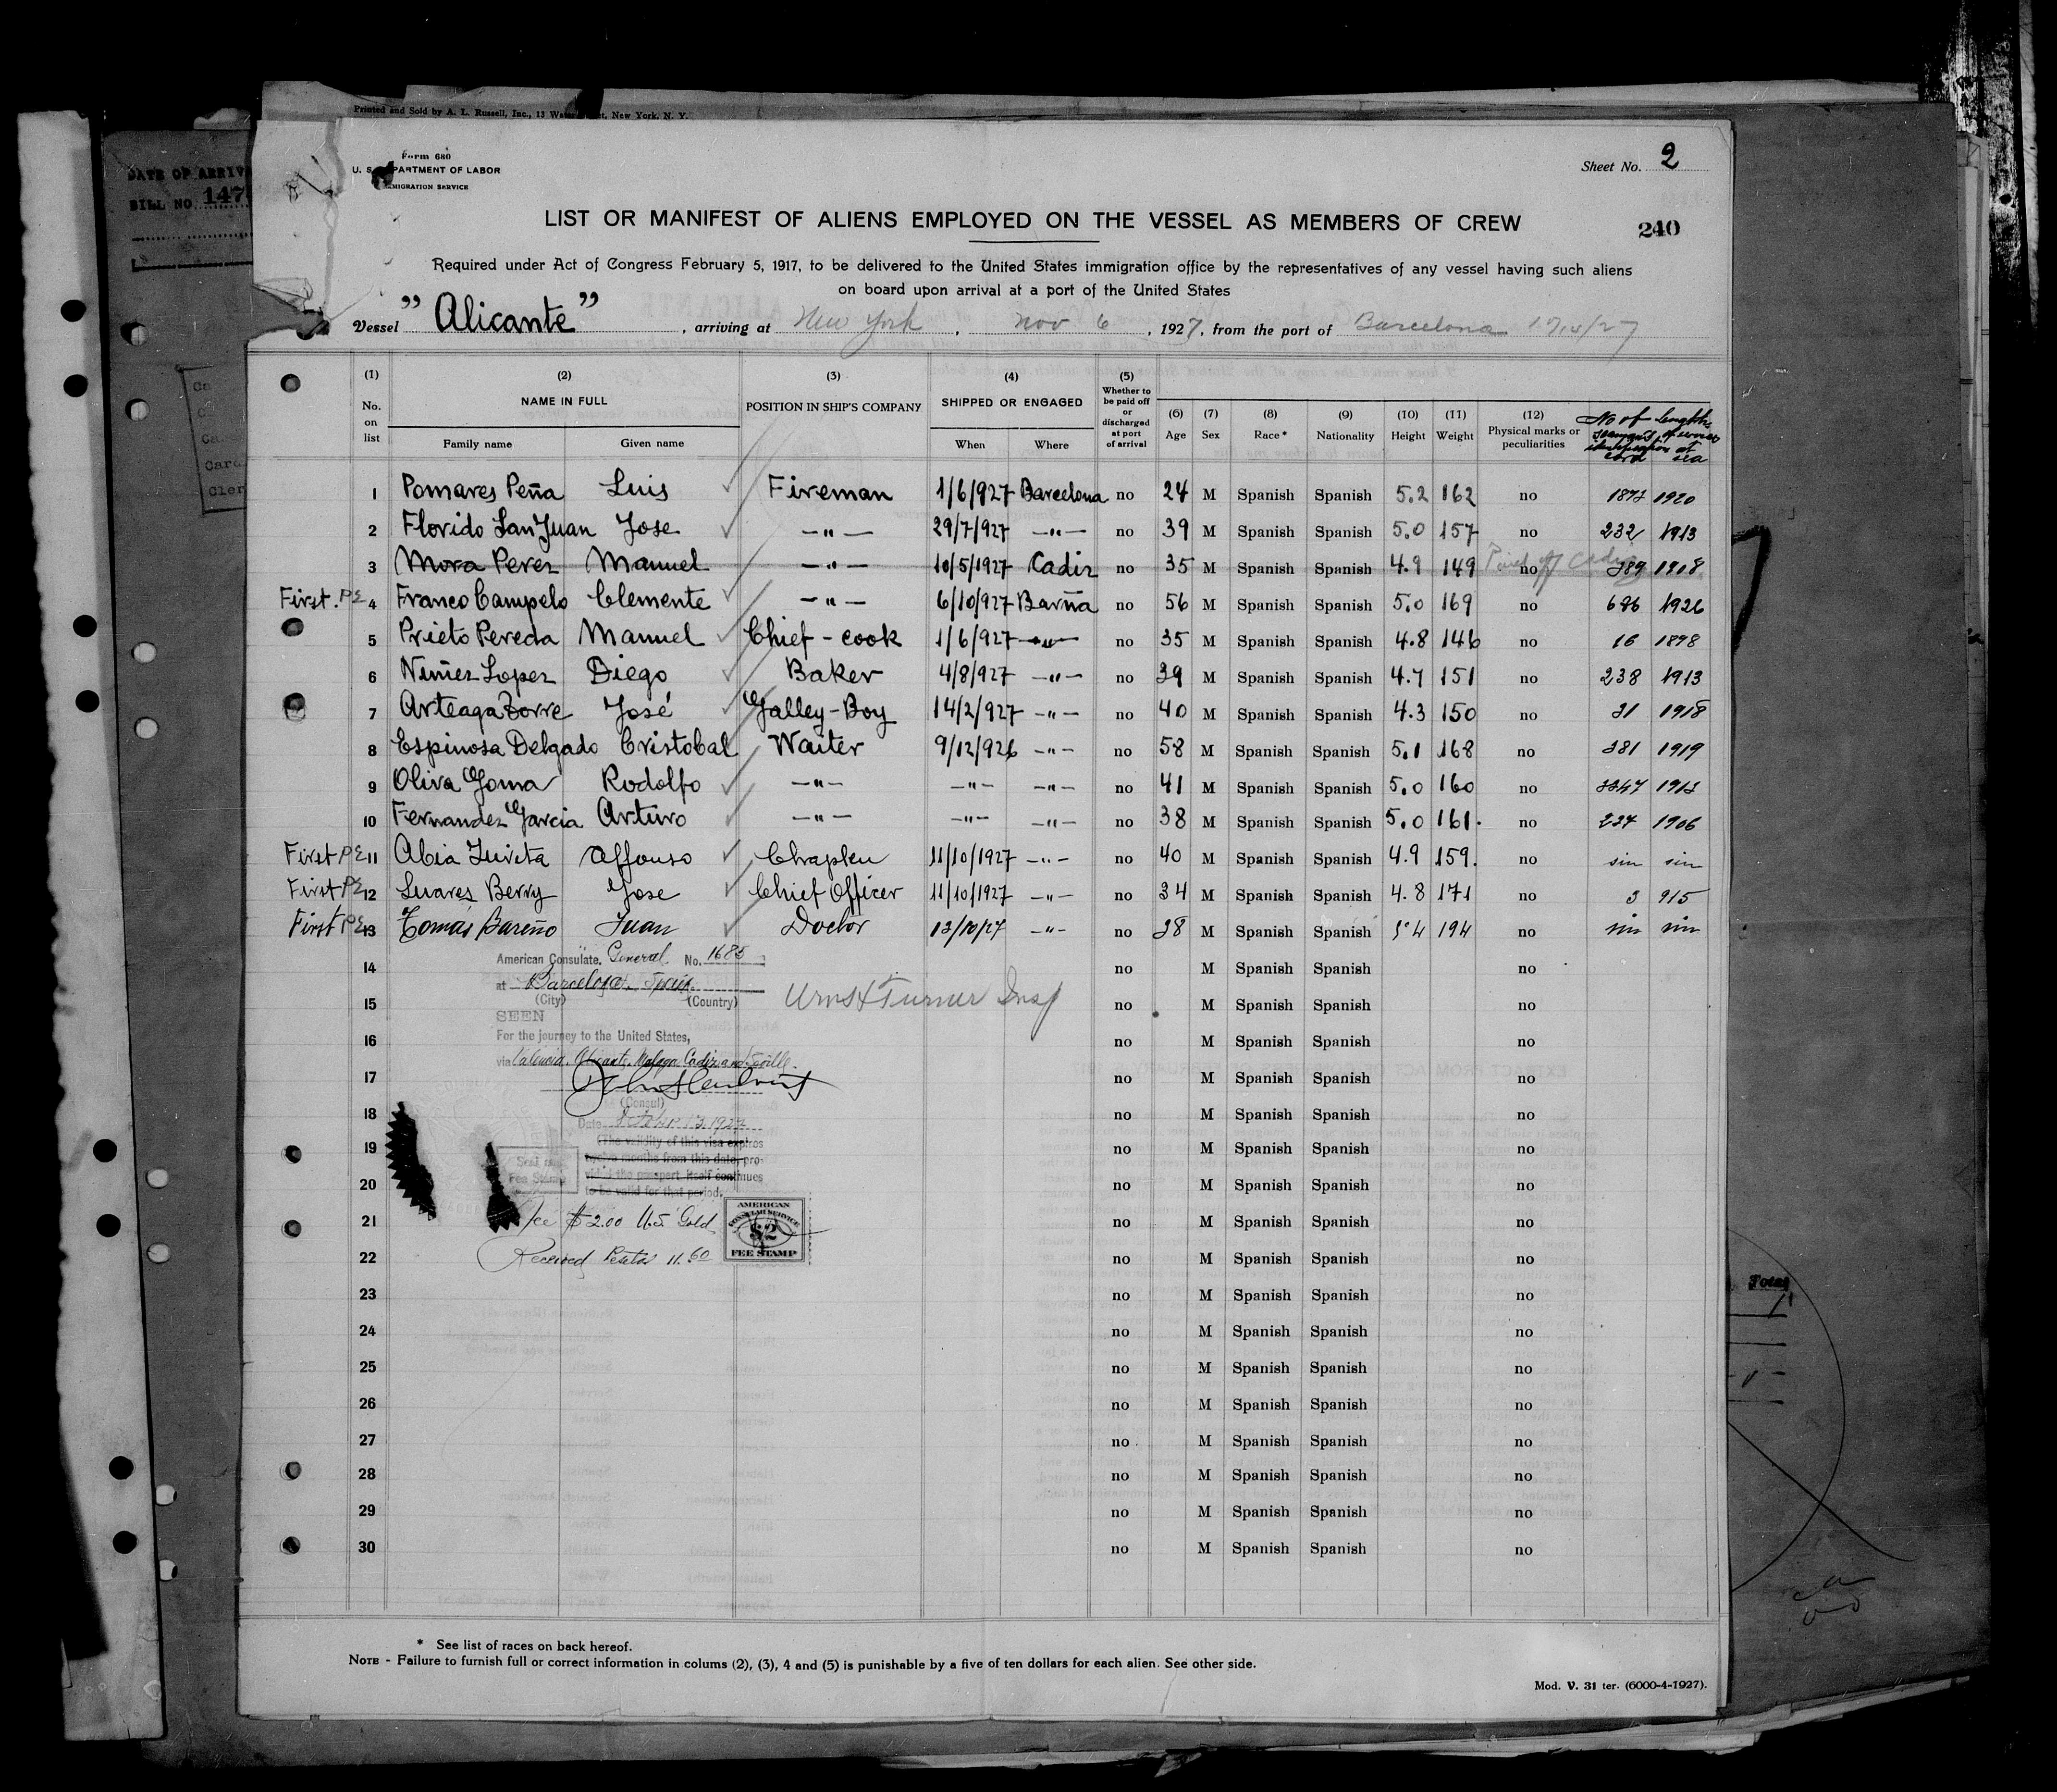 Printed and Sold by A. L. Russell, Inc., 13 Wa , New York, N. Y.
DATE OF ARRIV
BILL NO. 147
Form 680
U. S. PARTMENT OF LABOR
MIGRATION SERVICE
Sheet No. 2
LIST OR MANIFEST OF ALIENS EMPLOYED ON THE VESSEL AS MEMBERS OF CREW
240
Required under Act of Congress February 5, 1917, to be delivered to the United States immigration office by the representatives of any vessel having such aliens
on board upon arrival at a port of the United States
Vessel "Alicante", arriving at New York, Nov 6, 1927, from the port of Barcelona
(1) No. on list (2) NAME IN FULL Family name Given name (3) POSITION IN SHIP'S COMPANY (4) SHIPPED OR ENGAGED When Where (5) Whether to be paid off or discharged at port of arrival (6) Age (7) Sex (8) Race * (9) Nationality (10) Height (11) Weight (12) Physical marks or peculiarities No of seaman's identification card length of service at sea
1 Pomares Peña Luis Fireman 1/6/927 Barcelona no 24 M Spanish Spanish 5.2 162 no 1920
2 Florido San Juan Jose —"— 29/7/927 —"— no 39 M Spanish Spanish 5.0 157 no 232 1913
3 Mora Perez Manuel —"— 10/5/927 Cadiz no 35 M Spanish Spanish 4.9 149 no Paid off Cadiz 389 1918
First. P.E. 4 Franco Campelo Clemente —"— 6/10/927 Barña no 56 M Spanish Spanish 5.0 169 no 686 1926
5 Prieto Pereda Manuel Chief-cook 1/6/927 —"— no 35 M Spanish Spanish 4.8 146 no 16 1898
6 Nuñez Lopez Diego Baker 4/8/927 —"— no 39 M Spanish Spanish 4.7 151 no 238 1913
7 Arteaga Zorre José Galley-Boy 14/2/927 —"— no 40 M Spanish Spanish 4.3 150 no 31 1918
8 Espinosa Delgado Cristobal Waiter 9/12/926 —"— no 58 M Spanish Spanish 5.1 168 no 381 1919
9 Oliva Goma Rodolfo —"— —"— —"— no 41 M Spanish Spanish 5.0 160 no
10 Fernandez Garcia Arturo —"— —"— —"— no 38 M Spanish Spanish 5.0 161. no 1906
First P.E. 11 Abia Affonso Chaplen 11/10/1927 —"— no 40 M Spanish Spanish 4.9 159. no sin sin
First P.E. 12 Suares Berry Jose Chief Officer 11/10/1927 —"— no 34 M Spanish Spanish 4.8 171 no 3 915
First P.E. 13 Tomás Bareño Juan Doctor 13/10/27 —"— no 38 M Spanish Spanish 5'4 194 no sin sin
American Consulate. General. No. 1685
14 no M Spanish Spanish no
at Barcelona. Spain.
(City) (Country)
15 no M Spanish Spanish no
Turner Insp
SEEN
For the journey to the United States,
16 no M Spanish Spanish no
via Valencia, Alicante, Malaga, Cadiz and Seville.
17 no M Spanish Spanish no
(Consul)
18 no M Spanish Spanish no
Date October 13, 1927
(The validity of this visa expires
19 no M Spanish Spanish no
twelve months from this date, pro-
vided the passport itself continues
to be valid for that period.
Seal
Fee Stamp
20 no M Spanish Spanish no
21 no M Spanish Spanish no
Fee $2.00 U.S. Gold
AMERICAN
CONSULAR SERVICE
$2
FEE STAMP
22 no M Spanish Spanish no
Received Pesetas 11.60
23 no M Spanish Spanish no
Total
24 no M Spanish Spanish no
25 no M Spanish Spanish no
26 no M Spanish Spanish no
27 no M Spanish Spanish no
28 no M Spanish Spanish no
29 no M Spanish Spanish no
30 no M Spanish Spanish no
* See list of races on back hereof.
NOTE - Failure to furnish full or correct information in colums (2), (3), 4 and (5) is punishable by a five of ten dollars for each alien. See other side.
Mod. V. 31 ter. (6000-4-1927).